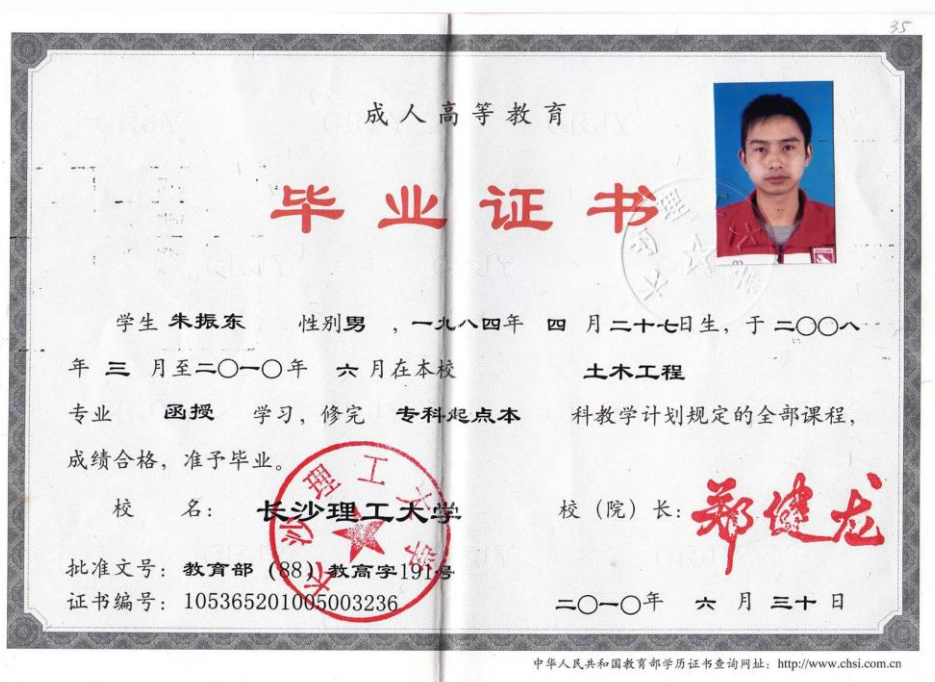 35
成人高等教育
毕业证书
学生 朱振东 性别男 ,一九八四年 四 月二十七日生，于二〇〇八
年 三 月至二〇一〇年 六 月在本校 土木工程
专业 函授 学习，修完 专科起点本 科教学计划规定的全部课程，
成绩合格，准予毕业。
校 名：长沙理工大学 校（院）长：郑健龙
批准文号：教育部（88）教高字191号
证书编号：105365201005003236 二〇一〇年 六 月 三十 日
长沙理工大学
中华人民共和国教育部学历证书查询网址：http://www.chsi.com.cn